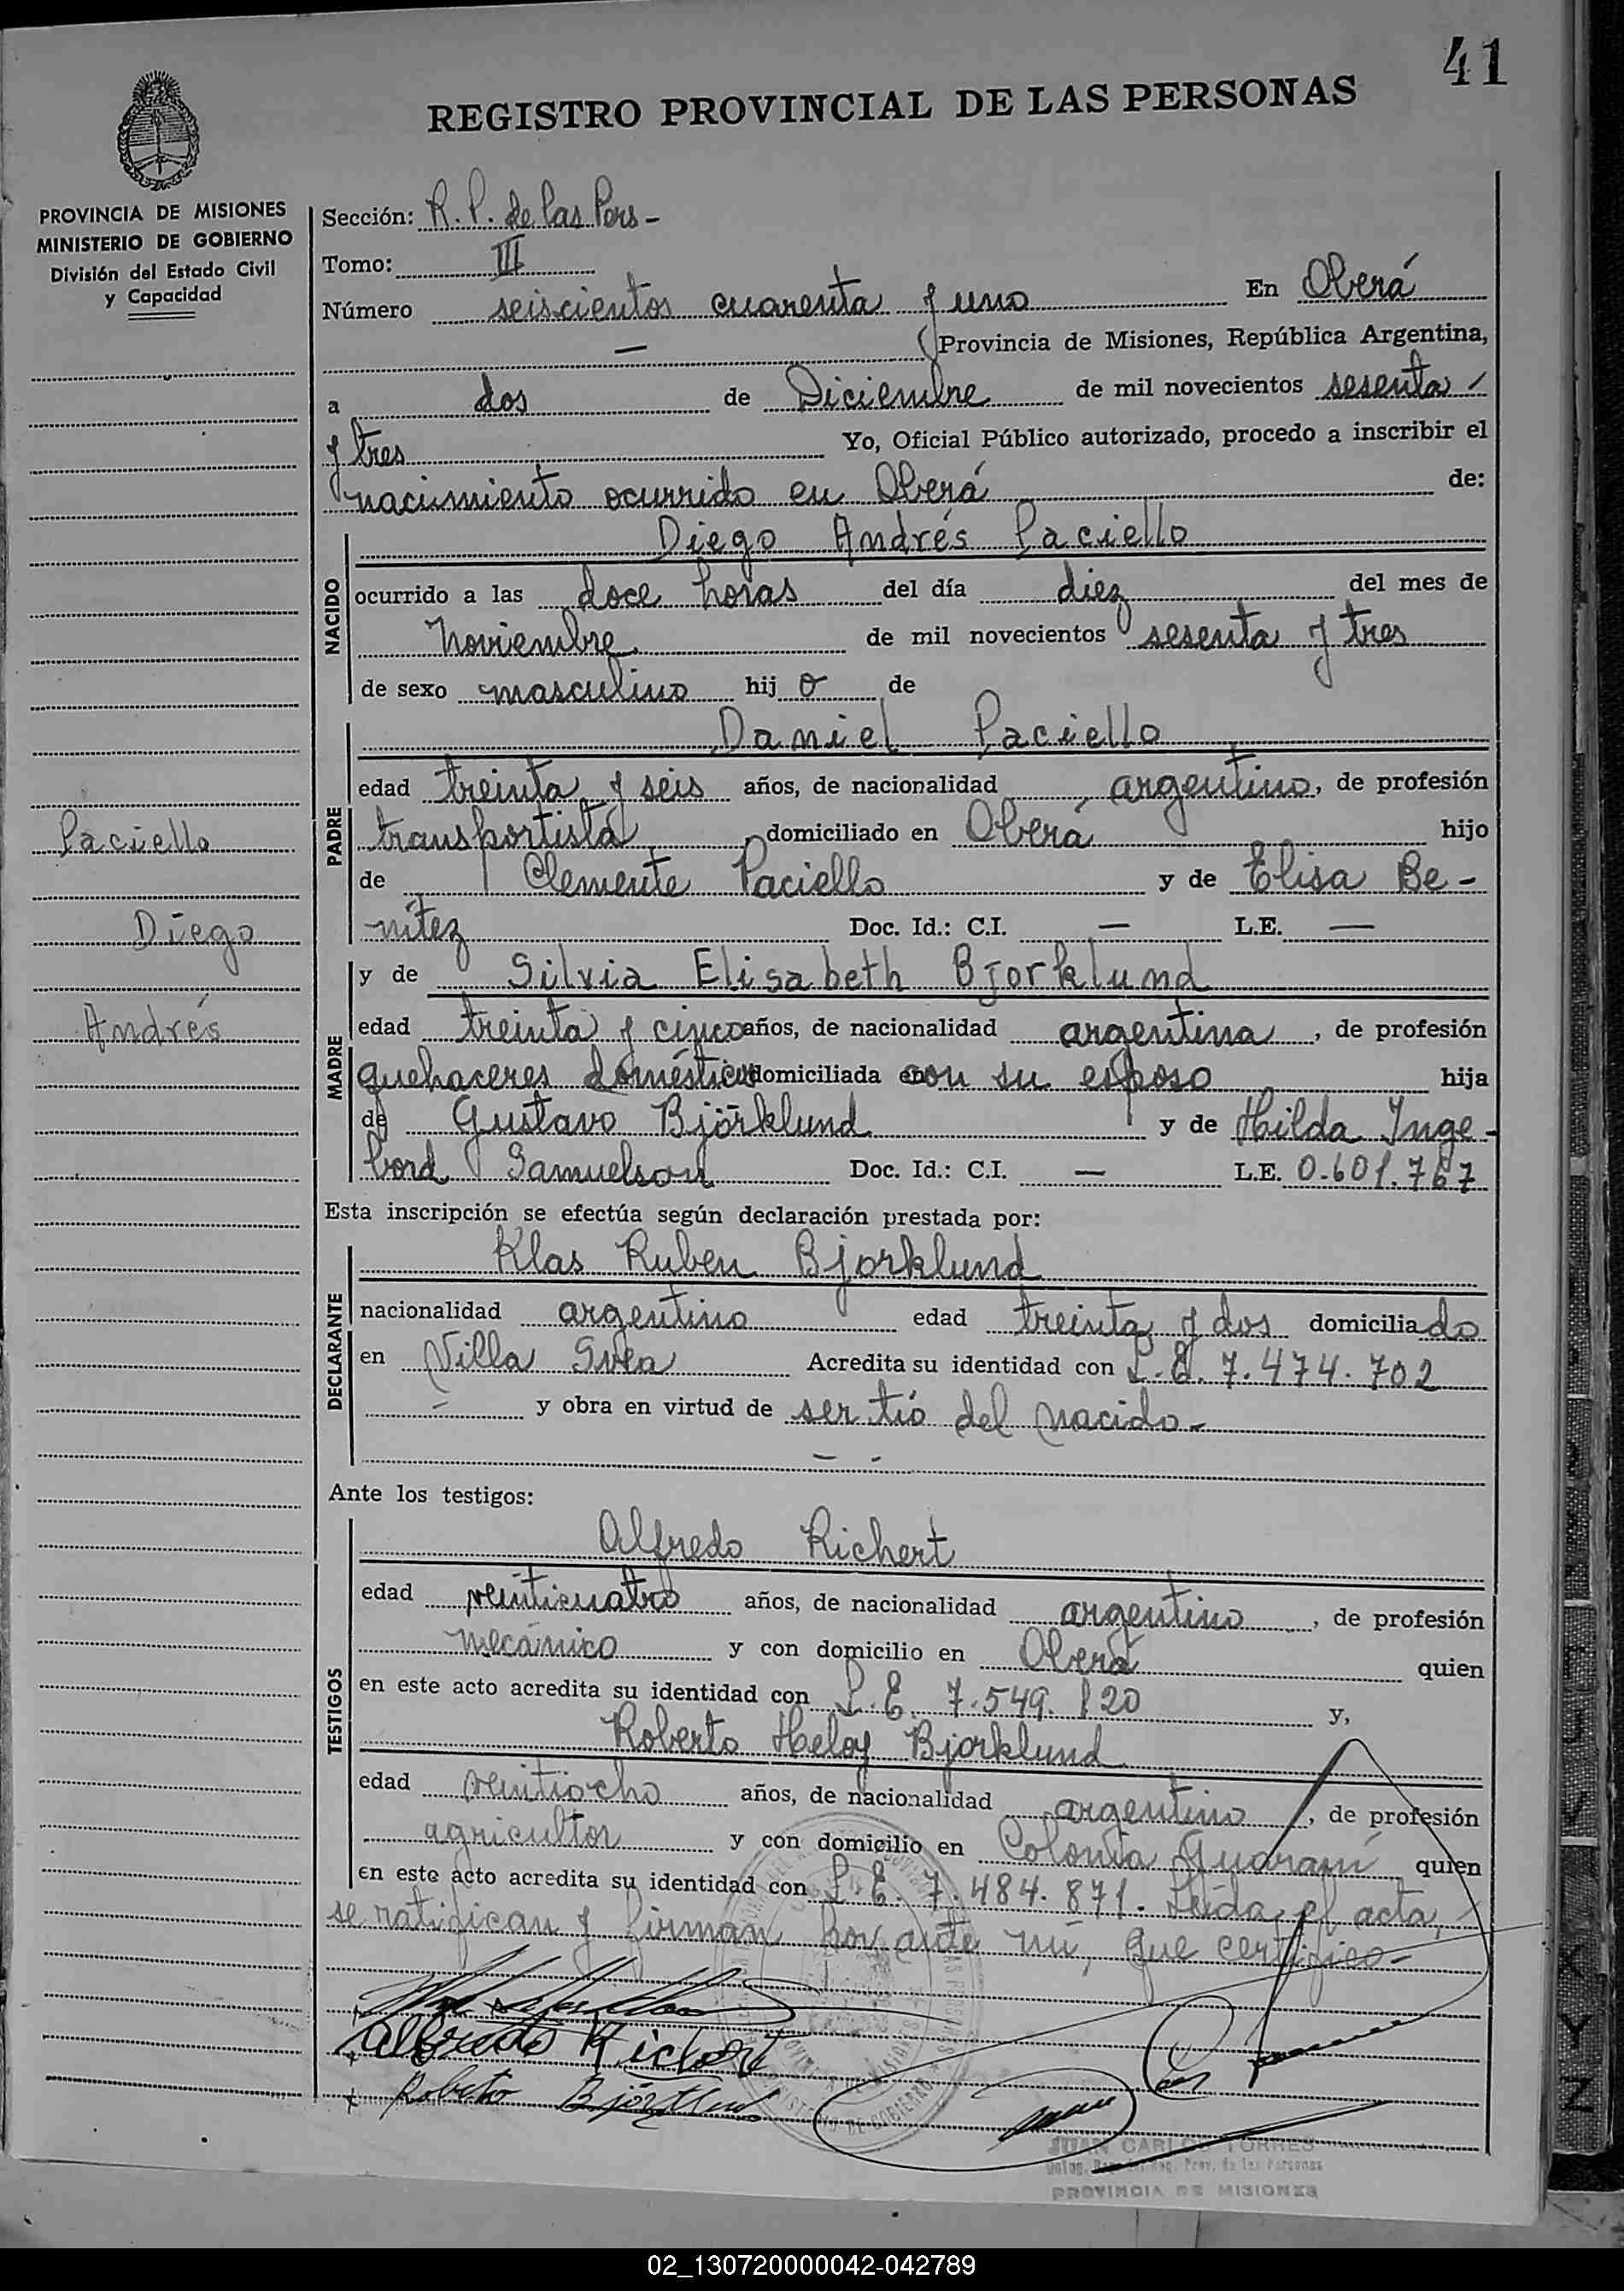 41
REGISTRO PROVINCIAL DE LAS PERSONAS
PROVINCIA DE MISIONES
MINISTERIO DE GOBIERNO
División del Estado Civil
y Capacidad
Sección: R. P. de las Pers-
Tomo: III
Número seiscientos cuarenta y uno En Oberá
— Provincia de Misiones, República Argentina,
a dos de Diciembre de mil novecientos sesenta
y tres Yo, Oficial Público autorizado, procedo a inscribir el
nacimiento ocurrido en Oberá de:
NACIDO
Diego Andrés Paciello
ocurrido a las doce horas del día diez del mes de
Noviembre de mil novecientos sesenta y tres
de sexo masculino hij o de
PADRE
Daniel Paciello
edad treinta y seis años, de nacionalidad argentino, de profesión
transportista domiciliado en Oberá hijo
de Clemente Paciello y de Elisa Be-
nítez Doc. Id.: C.I. — L.E. —
MADRE
y de Silvia Elisabeth Bjorklund
edad treinta y cinco años, de nacionalidad argentina, de profesión
quehaceres domésticos domiciliada en con su esposo hija
de Gustavo Björklund y de Hilda Inge-
bord Samuelson Doc. Id.: C.I. — L.E. 0.601.767
Paciello
Diego
Andrés
Esta inscripción se efectúa según declaración prestada por:
DECLARANTE
Klas Ruben Bjorklund
nacionalidad argentino edad treinta y dos domicilia do
en Villa Svea Acredita su identidad con L.E. 7.474.702
— y obra en virtud de ser tío del nacido.-
— -
Ante los testigos:
TESTIGOS
Alfredo Richert
edad veinticuatro años, de nacionalidad argentino, de profesión
mecánico y con domicilio en Oberá quien
en este acto acredita su identidad con L.E. 7.549.120 y,
Roberto Heloy Bjorklund
edad veintiocho años, de nacionalidad argentino, de profesión
agricultor y con domicilio en Colonia Guaraní quien
en este acto acredita su identidad con L.E. 7.484.871. Leída el acta,
se ratifican y firman por ante mí, que certifico-
Alfredo Richert
Roberto Björklund
JUAN CARLOS TORRES
Prov. de las Personas
PROVINCIA DE MISIONES
02_130720000042-042789